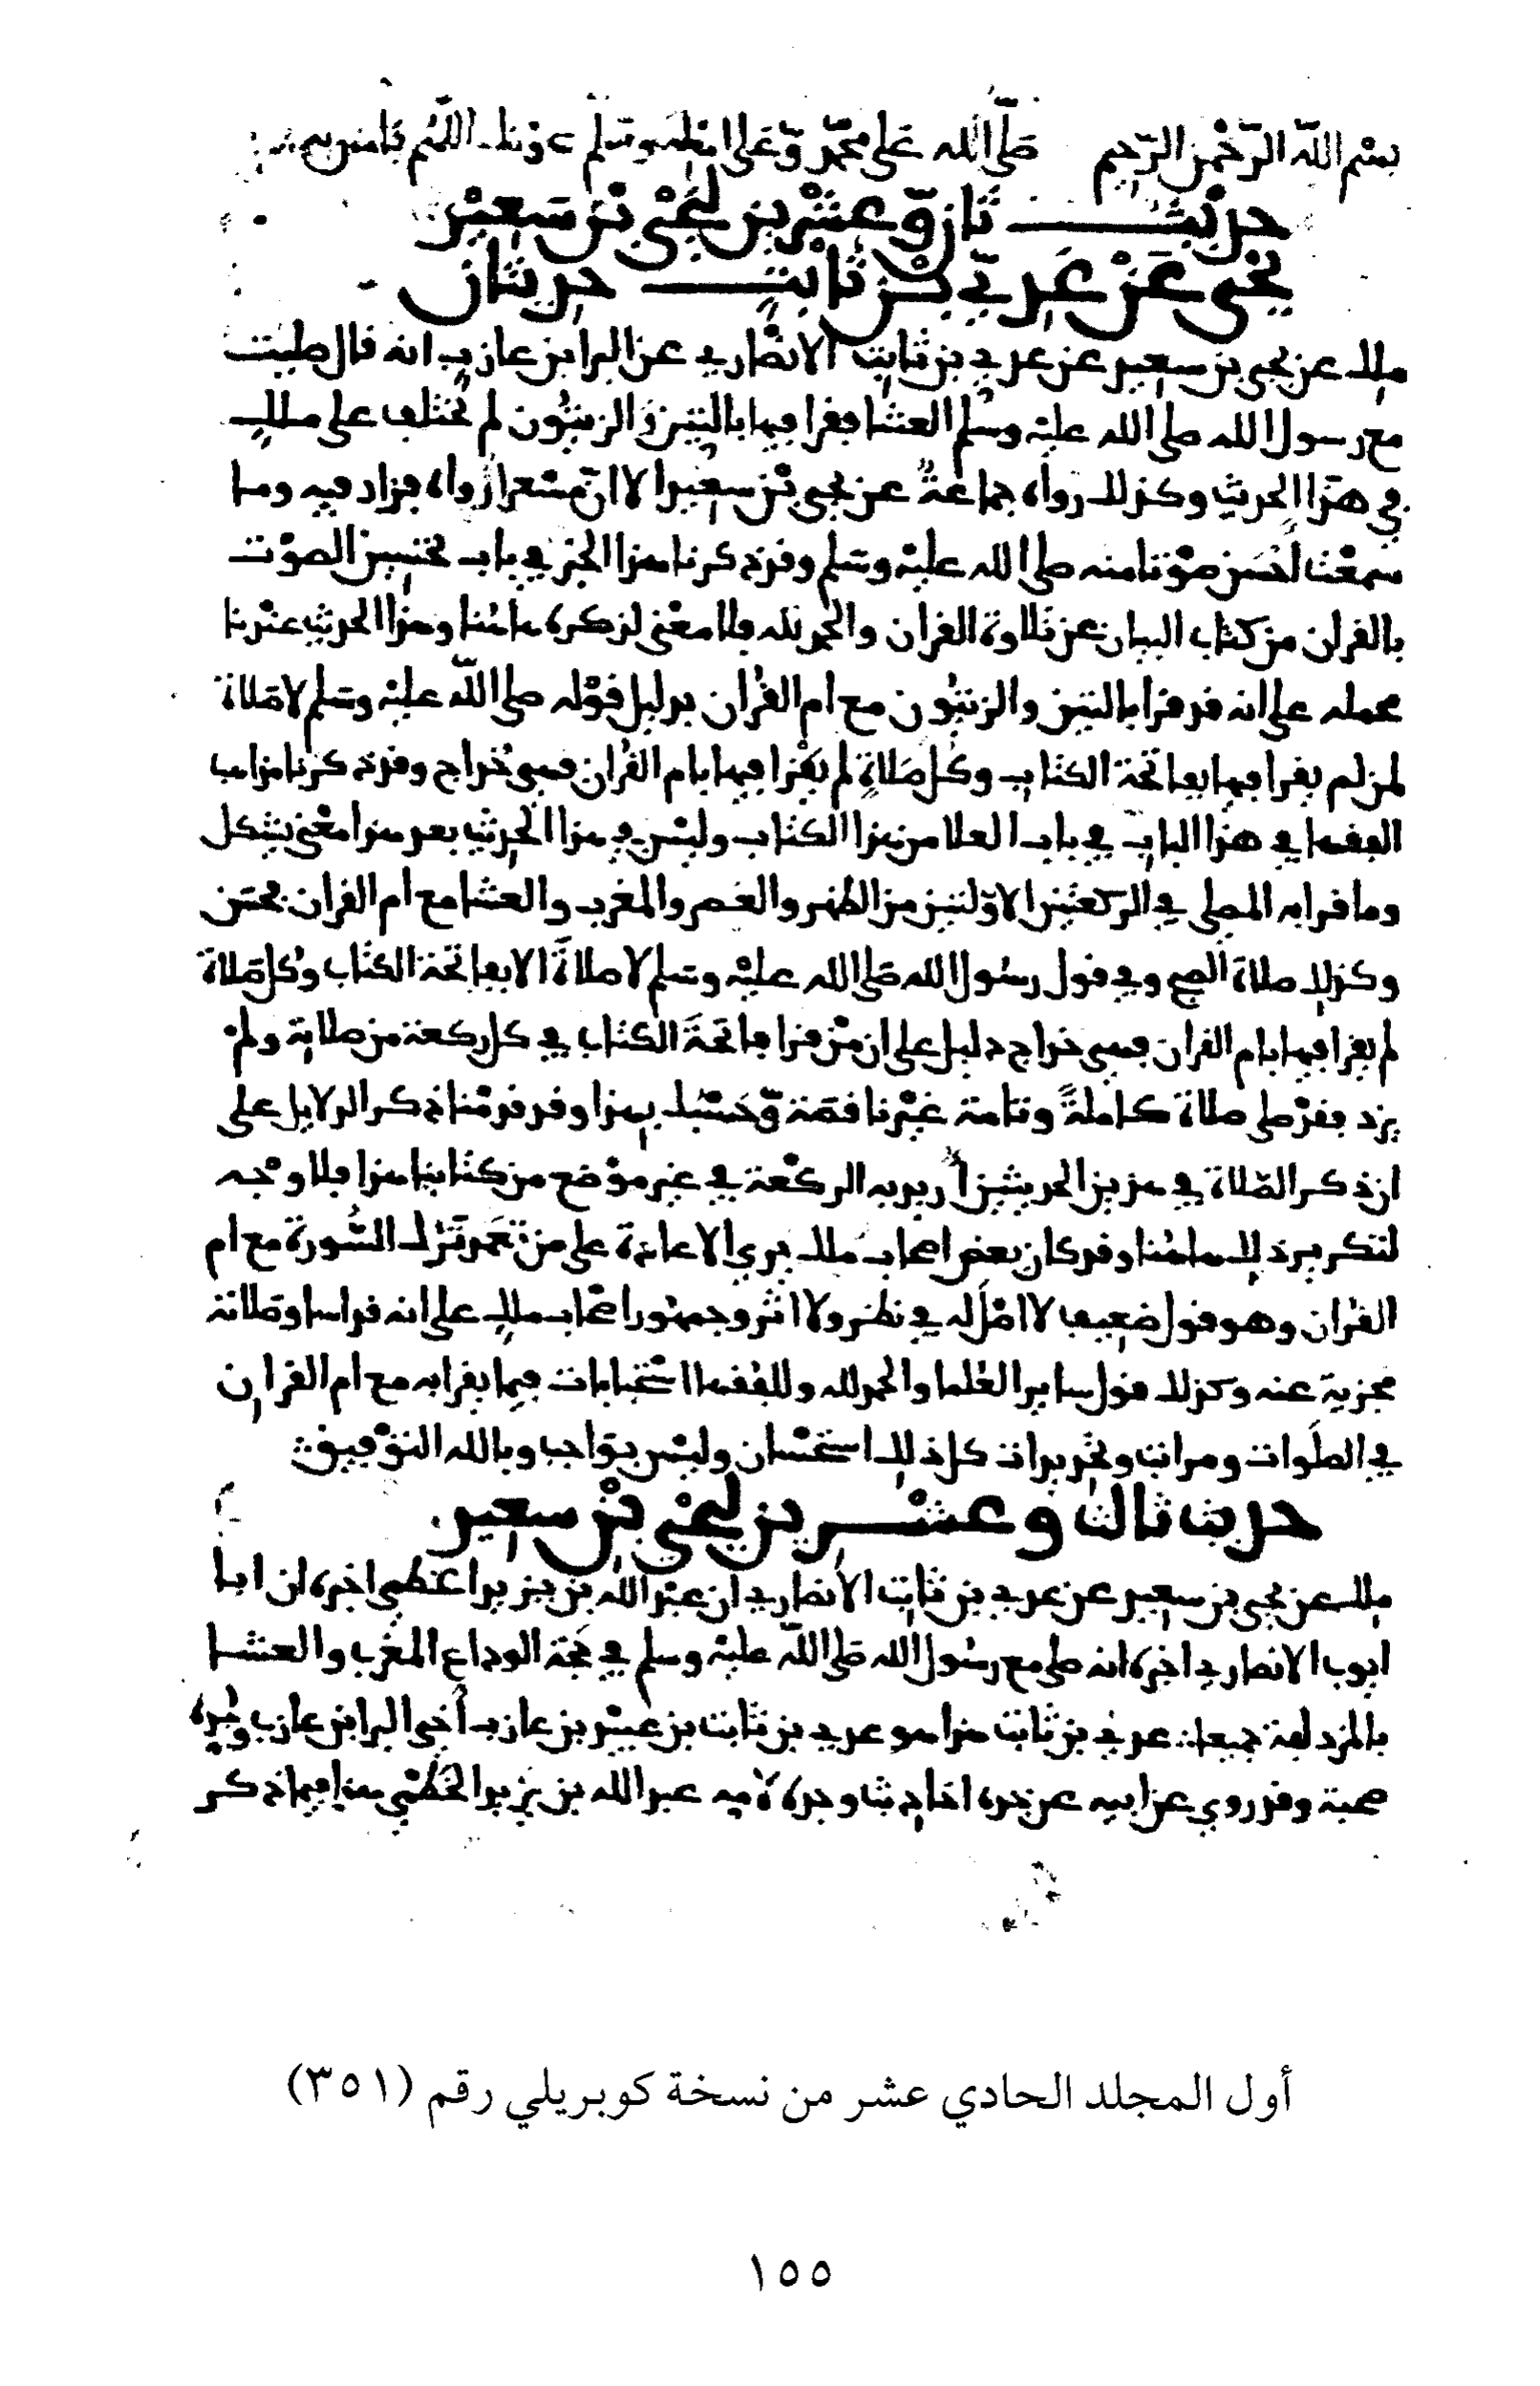 بسم الله الرحمن الرحيم صلى الله على محمد وعلى اهله وسلم عونك اللهم
حديث ثان وعشرين ليحيى بن سعيد
يحيى عن عدي بن ثابت حديثان
ملك عن يحيى بن سعيد عن عدي بن ثابت الانصاري عن البرا بن عازب انه قال صليت
مع رسول الله صلى الله عليه وسلم العشا فقرا فيها بالتين والزيتون لم يختلف على ملك
في هذا الحديث وكذلك رواه جماعة عن يحيى بن سعيد الا ان مسعرا رواه فزاد فيه وما
سمعت احسن صوتا منه صلى الله عليه وسلم وقد ذكرنا هذا الخبر في باب تحسين الصوت
بالقران من كتاب البيان عن تلاوة القران والحمد لله فلا معنى لذكره هاهنا وهذا الحديث عندنا
محمله على انه قد قرا بالتين والزيتون مع ام القران بدليل قوله صلى الله عليه وسلم لا صلاة
لمن لم يقرا فيها بفاتحة الكتاب وكل صلاة لم يقرا فيها بام القران فهي خداج وقد ذكرنا مذاهب
الفقها في هذا الباب في باب العلا من هذا الكتاب وليس في هذا الحديث بعد هذا معنى يشكل
وما قرا به المصلي في الركعتين الاولتين من الظهر والعصر والمغرب والعشا مع ام القران فحسن
وكذلك صلاة الصبح وفي قول رسول الله صلى الله عليه وسلم لا صلاة الا بفاتحة الكتاب وكل صلاة
لم يقرا فيها بام القران فهي خداج دليل على ان من قرا فاتحة الكتاب في كل ركعة من صلاته ولم
يزد فقد صلى صلاة كاملة وتامة غير ناقصة وحسبك بهذا وقد قدمنا ذكر الدلايل على
ان ذكر الصلاة في هذين الحديثين اريد به الركعة في غير موضع من كتابنا هذا فلا وجه
لتكرير ذلك هاهنا وقد كان بعض اصحاب ملك يرى الاعادة على من تعمد ترك السورة مع ام
القران وهو قول ضعيف لا اصل له في نظر ولا اثر وجمهور اصحاب ملك على انه قد اسا وصلاته
مجزية عنه وكذلك قول ساير العلما والحمد لله وللفقها استحبابات فيما يقرا به مع ام القران
في الصلوات ومراتب وتحديدات كل ذلك استحسان وليس بواجب وبالله التوفيق
حديث ثالث وعشرين ليحيى بن سعيد
ملك عن يحيى بن سعيد عن عدي بن ثابت الانصاري ان عبد الله بن يزيد الخطمي اخبره ان ابا
ايوب الانصاري اخبره انه صلى مع رسول الله صلى الله عليه وسلم في حجة الوداع المغرب والعشا
بالمزدلفة جميعا عدي بن ثابت هذا هو عدي بن ثابت بن عبيد بن عازب اخي البرا بن عازب ولجده
صحبة وقد روي عن ابيه عن جده احاديث وجده لامه عبد الله بن يزيد الخطمي هذا فيما ذكر
أول المجلد الحادي عشر من نسخة كوبريلي رقم (٣٥١)
١٥٥